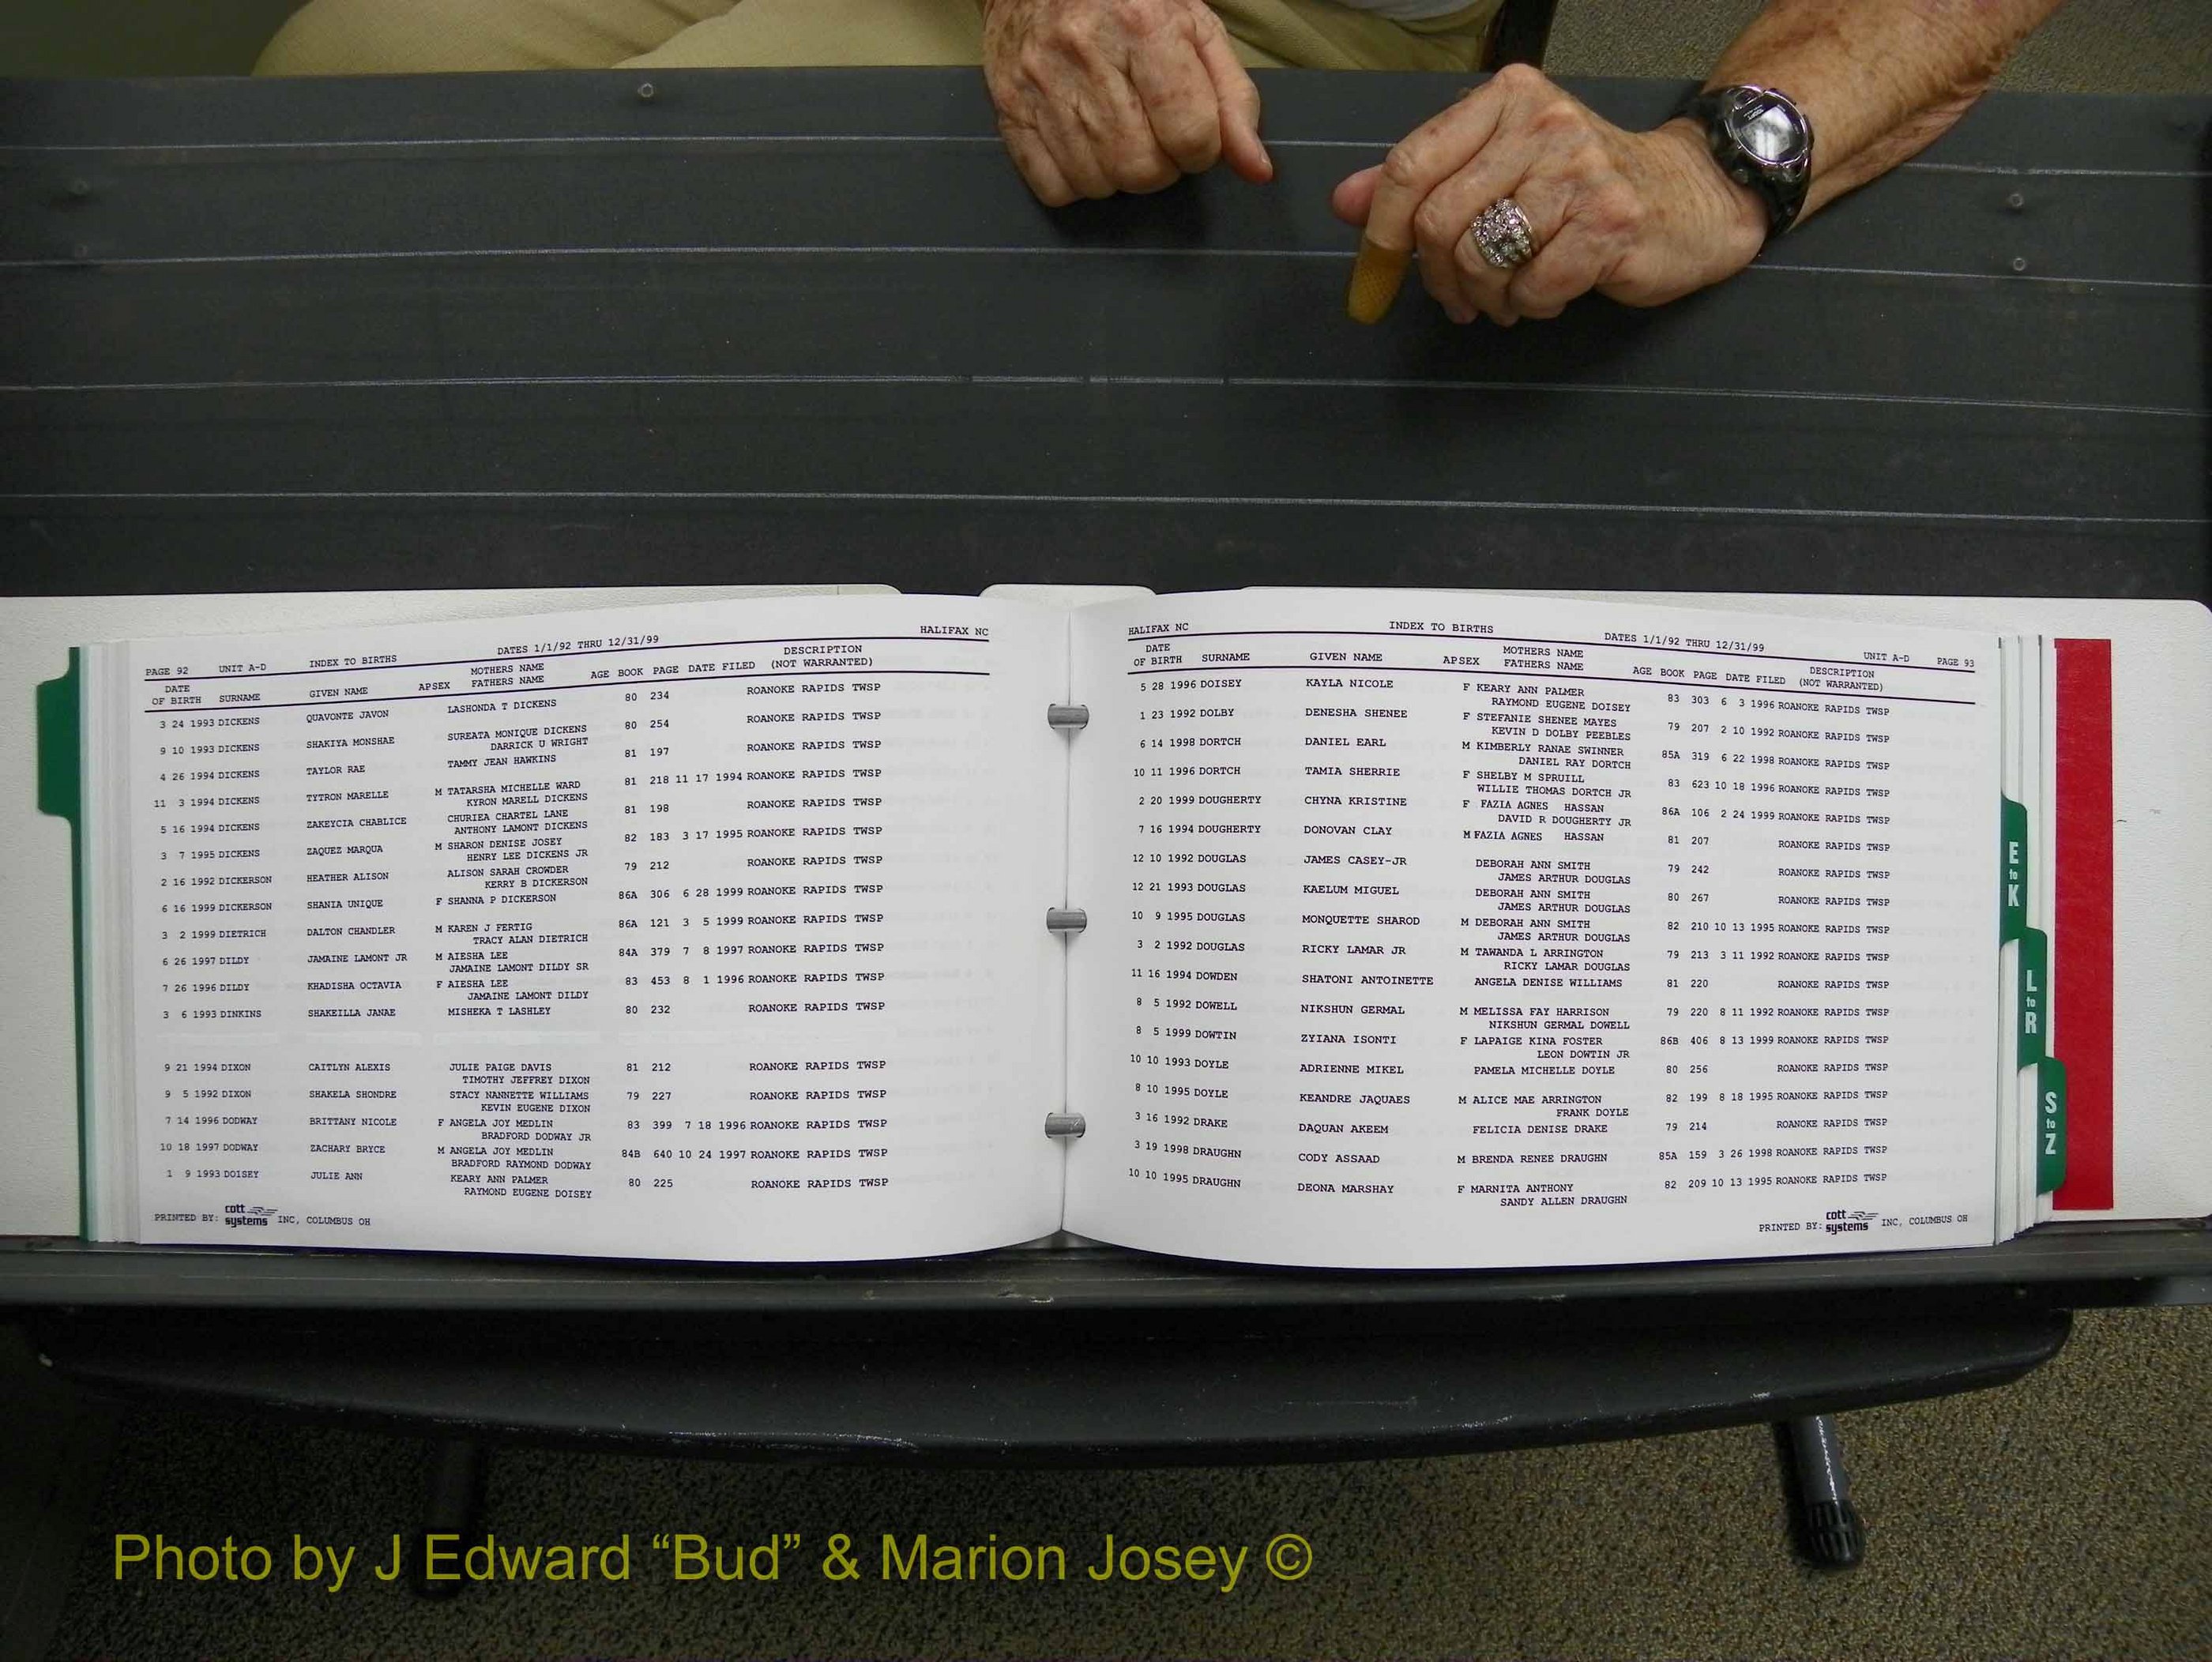 PAGE 92 UNIT A-D INDEX TO BIRTHS DATES 1/1/92 THRU 12/31/99 HALIFAX NC
DATE OF BIRTH SURNAME GIVEN NAME AP SEX MOTHERS NAME FATHERS NAME AGE BOOK PAGE DATE FILED DESCRIPTION (NOT WARRANTED)
3 24 1993 DICKENS QUAVONTE JAVON LASHONDA T DICKENS 80 234 ROANOKE RAPIDS TWSP
9 10 1993 DICKENS SHAKIYA MONSHAE SUREATA MONIQUE DICKENS 80 254 ROANOKE RAPIDS TWSP
DARRICK U WRIGHT
4 26 1994 DICKENS TAYLOR RAE TAMMY JEAN HAWKINS 81 197 ROANOKE RAPIDS TWSP
11 3 1994 DICKENS TYTRON MARELLE M TATARSHA MICHELLE WARD 81 218 11 17 1994 ROANOKE RAPIDS TWSP
KYRON MARELL DICKENS
5 16 1994 DICKENS ZAKEYCIA CHABLICE CHURIEA CHARTEL LANE 81 198 ROANOKE RAPIDS TWSP
ANTHONY LAMONT DICKENS
3 7 1995 DICKENS ZAQUEZ MARQUA M SHARON DENISE JOSEY 82 183 3 17 1995 ROANOKE RAPIDS TWSP
HENRY LEE DICKENS JR
2 16 1992 DICKERSON HEATHER ALISON ALISON SARAH CROWDER 79 212 ROANOKE RAPIDS TWSP
KERRY B DICKERSON
6 16 1999 DICKERSON SHANIA UNIQUE F SHANNA P DICKERSON 86A 306 6 28 1999 ROANOKE RAPIDS TWSP
3 2 1999 DIETRICH DALTON CHANDLER M KAREN J FERTIG 86A 121 3 5 1999 ROANOKE RAPIDS TWSP
TRACY ALAN DIETRICH
6 26 1997 DILDY JAMAINE LAMONT JR M AIESHA LEE 84A 379 7 8 1997 ROANOKE RAPIDS TWSP
JAMAINE LAMONT DILDY SR
7 26 1996 DILDY KHADISHA OCTAVIA F AIESHA LEE 83 453 8 1 1996 ROANOKE RAPIDS TWSP
JAMAINE LAMONT DILDY
3 6 1993 DINKINS SHAKEILLA JANAE MISHEKA T LASHLEY 80 232 ROANOKE RAPIDS TWSP
9 21 1994 DIXON CAITLYN ALEXIS JULIE PAIGE DAVIS 81 212 ROANOKE RAPIDS TWSP
TIMOTHY JEFFREY DIXON
9 5 1992 DIXON SHAKELA SHONDRE STACY NANNETTE WILLIAMS 79 227 ROANOKE RAPIDS TWSP
KEVIN EUGENE DIXON
7 14 1996 DODWAY BRITTANY NICOLE F ANGELA JOY MEDLIN 83 399 7 18 1996 ROANOKE RAPIDS TWSP
BRADFORD DODWAY JR
10 18 1997 DODWAY ZACHARY BRYCE M ANGELA JOY MEDLIN 84B 640 10 24 1997 ROANOKE RAPIDS TWSP
BRADFORD RAYMOND DODWAY
1 9 1993 DOISEY JULIE ANN KEARY ANN PALMER 80 225 ROANOKE RAPIDS TWSP
RAYMOND EUGENE DOISEY
PRINTED BY: cott systems INC, COLUMBUS OH
HALIFAX NC INDEX TO BIRTHS DATES 1/1/92 THRU 12/31/99 UNIT A-D PAGE 93
DATE OF BIRTH SURNAME GIVEN NAME AP SEX MOTHERS NAME FATHERS NAME AGE BOOK PAGE DATE FILED DESCRIPTION (NOT WARRANTED)
5 28 1996 DOISEY KAYLA NICOLE F KEARY ANN PALMER 83 303 6 3 1996 ROANOKE RAPIDS TWSP
RAYMOND EUGENE DOISEY
1 23 1992 DOLBY DENESHA SHENEE F STEFANIE SHENEE MAYES 79 207 2 10 1992 ROANOKE RAPIDS TWSP
KEVIN D DOLBY PEEBLES
6 14 1998 DORTCH DANIEL EARL M KIMBERLY RANAE SWINNER 85A 319 6 22 1998 ROANOKE RAPIDS TWSP
DANIEL RAY DORTCH
10 11 1996 DORTCH TAMIA SHERRIE F SHELBY M SPRUILL 83 623 10 18 1996 ROANOKE RAPIDS TWSP
WILLIE THOMAS DORTCH JR
2 20 1999 DOUGHERTY CHYNA KRISTINE F FAZIA AGNES HASSAN 86A 106 2 24 1999 ROANOKE RAPIDS TWSP
DAVID R DOUGHERTY JR
7 16 1994 DOUGHERTY DONOVAN CLAY M FAZIA AGNES HASSAN 81 207 ROANOKE RAPIDS TWSP
12 10 1992 DOUGLAS JAMES CASEY-JR DEBORAH ANN SMITH 79 242 ROANOKE RAPIDS TWSP
JAMES ARTHUR DOUGLAS
12 21 1993 DOUGLAS KAELUM MIGUEL DEBORAH ANN SMITH 80 267 ROANOKE RAPIDS TWSP
JAMES ARTHUR DOUGLAS
10 9 1995 DOUGLAS MONQUETTE SHAROD M DEBORAH ANN SMITH 82 210 10 13 1995 ROANOKE RAPIDS TWSP
JAMES ARTHUR DOUGLAS
3 2 1992 DOUGLAS RICKY LAMAR JR M TAWANDA L ARRINGTON 79 213 3 11 1992 ROANOKE RAPIDS TWSP
RICKY LAMAR DOUGLAS
11 16 1994 DOWDEN SHATONI ANTOINETTE ANGELA DENISE WILLIAMS 81 220 ROANOKE RAPIDS TWSP
8 5 1992 DOWELL NIKSHUN GERMAL M MELISSA FAY HARRISON 79 220 8 11 1992 ROANOKE RAPIDS TWSP
NIKSHUN GERMAL DOWELL
8 5 1999 DOWTIN ZYIANA ISONTI F LAPAIGE KINA FOSTER 86B 406 8 13 1999 ROANOKE RAPIDS TWSP
LEON DOWTIN JR
10 10 1993 DOYLE ADRIENNE MIKEL PAMELA MICHELLE DOYLE 80 256 ROANOKE RAPIDS TWSP
8 10 1995 DOYLE KEANDRE JAQUAES M ALICE MAE ARRINGTON 82 199 8 18 1995 ROANOKE RAPIDS TWSP
FRANK DOYLE
3 16 1992 DRAKE DAQUAN AKEEM FELICIA DENISE DRAKE 79 214 ROANOKE RAPIDS TWSP
3 19 1998 DRAUGHN CODY ASSAAD M BRENDA RENEE DRAUGHN 85A 159 3 26 1998 ROANOKE RAPIDS TWSP
10 10 1995 DRAUGHN DEONA MARSHAY F MARNITA ANTHONY 82 209 10 13 1995 ROANOKE RAPIDS TWSP
SANDY ALLEN DRAUGHN
PRINTED BY: cott systems INC, COLUMBUS OH
E to K
L to R
S to Z
Photo by J Edward “Bud” & Marion Josey ©